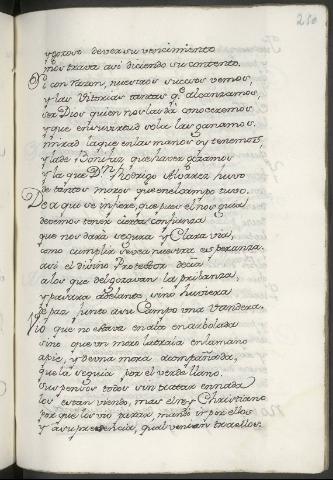 210
y gozoso de ver su vencimiento
mostrava assi diciendo su contento.
Si con razon, nuestros sucesos vemos
y las Vitorias tantas q̃ alcanzamos,
ser Dios quien nos las dà conoceremos
y que en virtud sola las ganamos.
mirad la que en las manos oy tenemos,
y la de Benituz que haver gozamos
y la que Dⁿ Rodrigo Alvarez huvo
de tantos moros que en el campo tuvo.
De à que se infiere, que pues el nos guia
devemos tener cierta confianza
que nos darà segura y Clara via,
como cumplir se vea nuestra esperanza.
assi el divino Protector decia
a los que del gozavan la privanza,
y passara adelante, sino huviera
de paz junto a su Campo una Vandera.
Vio que no estava en asta enarbolada
sino que un moro la traia en la mano
a pie, y de una mora acompañada,
que la seguia por el verde llano.
suspensos todos sin tratar en nada
los estan viendo, mas el rey Christiano
por que los vio parar mandò ir por ellos
y a su presencia, qual venian traellos.